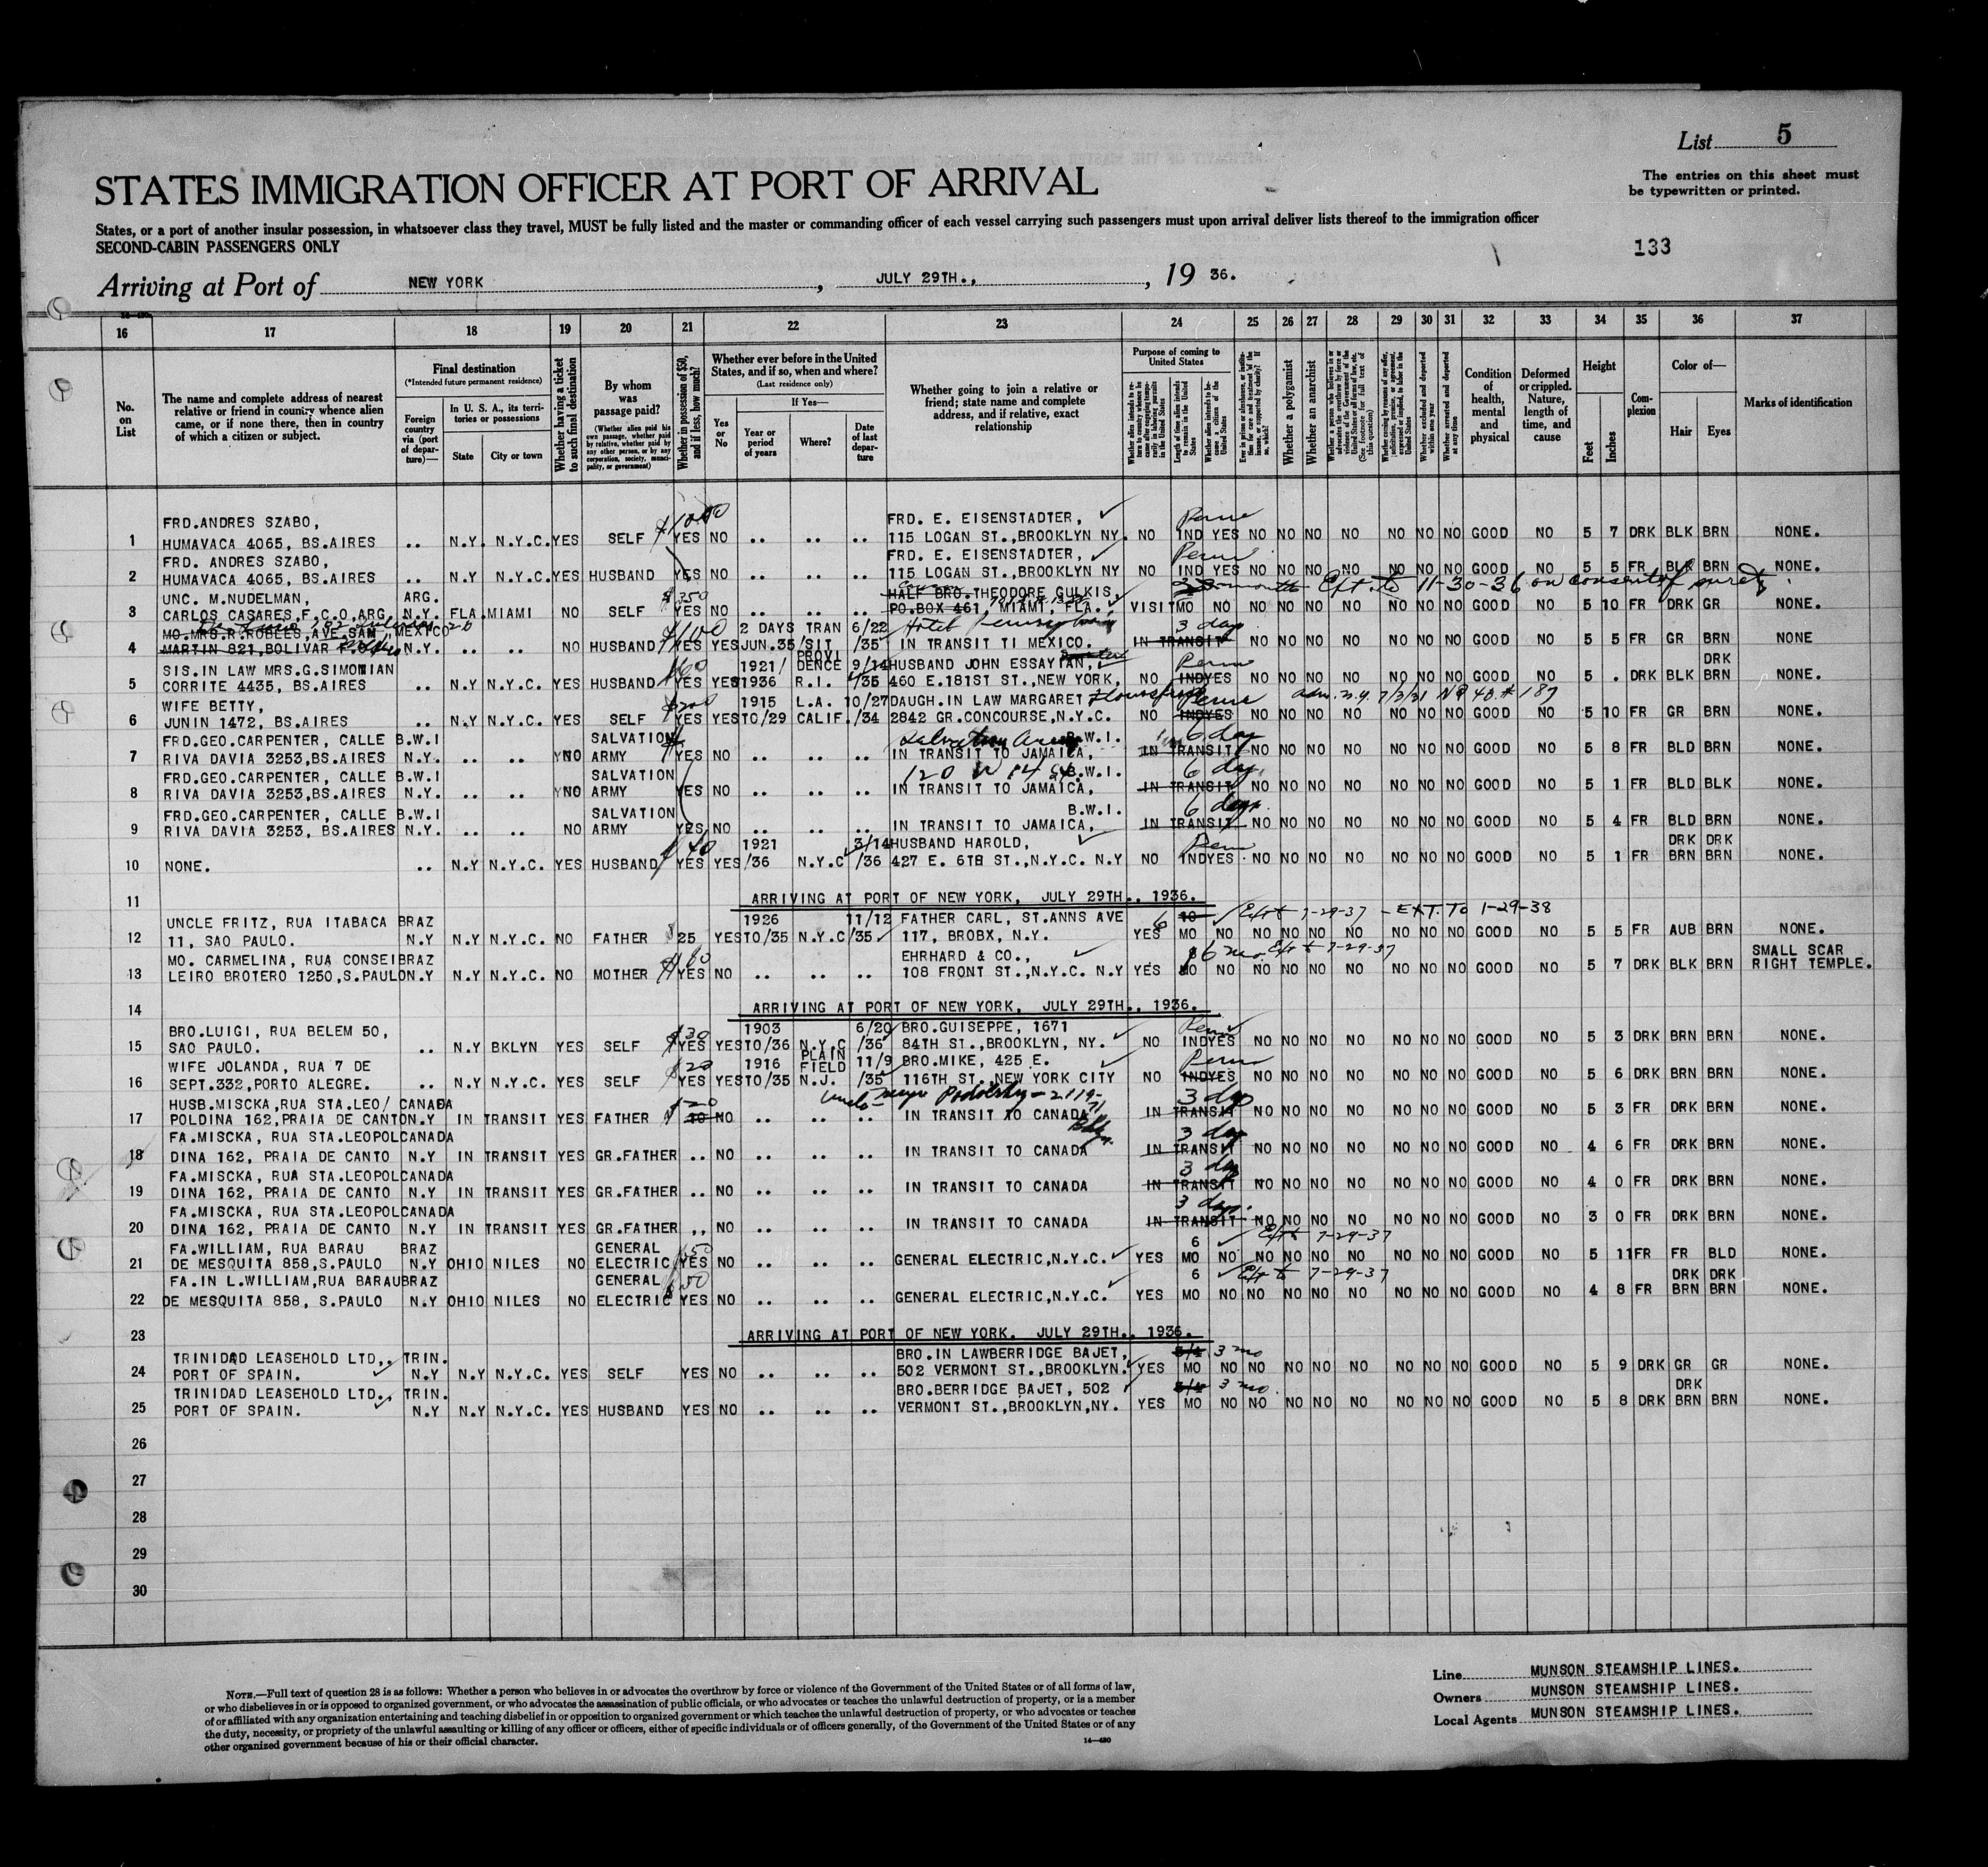 List 5
STATES IMMIGRATION OFFICER AT PORT OF ARRIVAL
The entries on this sheet must
be typewritten or printed.
States, or a port of another insular possession, in whatsoever class they travel, MUST be fully listed and the master or commanding officer of each vessel carrying such passengers must upon arrival deliver lists thereof to the immigration officer
SECOND-CABIN PASSENGERS ONLY
133
Arriving at Port of NEW YORK, JULY 29TH., 19 36.
16 17 18 19 20 21 22 23 24 25 26 27 28 29 30 31 32 33 34 35 36 37
No. on List
The name and complete address of nearest relative or friend in country whence alien came, or if none there, then in country of which a citizen or subject.
Final destination
(*Intended future permanent residence)
Foreign country via (port of departure)—
In U. S. A., its territories or possessions
State
City or town
Whether having a ticket to such final destination
By whom was passage paid?
(Whether alien paid his own passage, whether paid by relative, whether paid by any other person, or by any corporation, society, municipality, or government)
Whether in possession of $50, and if less, how much?
Whether ever before in the United States, and if so, when and where?
(Last residence only)
Yes or No
If Yes—
Year or period of years
Where?
Date of last departure
Whether going to join a relative or friend; state name and complete address, and if relative, exact relationship
Purpose of coming to United States
Length of time alien intends to remain in the United States
Whether alien intends to become a citizen of the United States
Whether a polygamist
Whether an anarchist
Whether excluded and deported within one year
Whether arrested and deported at any time
Condition of health, mental and physical
Deformed or crippled. Nature, length of time, and cause
Height
Feet
Inches
Complexion
Color of—
Hair
Eyes
Marks of identification
FRD.ANDRES SZABO, $1000 FRD. E. EISENSTADTER, Perm
1 HUMAVACA 4065, BS.AIRES .. N.Y. N.Y.C. YES SELF YES NO .. .. .. 115 LOGAN ST.,BROOKLYN NY. NO IND YES NO NO NO NO NO NO NO GOOD NO 5 7 DRK BLK BRN NONE.
FRD. ANDRES SZABO, FRD. E. EISENSTADTER, Perm
2 HUMAVACA 4065, BS.AIRES .. N.Y N.Y.C. YES HUSBAND YES NO .. .. .. 115 LOGAN ST.,BROOKLYN NY NO IND YES NO NO NO NO NO NO NO GOOD NO 5 5 FR BLK BRN NONE.
UNC. M.NUDELMAN, ARG. $350 HALF BRO.THEODORE GULKIS, Ext. to 11-30-36 on consent of surety.
3 CARLOS CASARES,F.C.O.ARG. N.Y. FLA. MIAMI NO SELF YES NO .. .. .. PO.BOX 461, MIAMI, FLA. VISIT MO NO NO NO NO NO NO NO NO GOOD NO 5 10 FR DRK GR NONE.
MO.MRS.R.ROBLES,AVE.SAN MEXICO $100 2 DAYS TRAN 6/22 Hotel Pennsylvania 3 days
4 MARTIN 821,BOLIVAR N.Y. .. .. NO HUSBAND YES YES JUN.35 /SIT. /35 IN TRANSIT TI MEXICO. IN TRANSIT NO NO NO NO NO NO NO GOOD NO 5 5 FR GR BRN NONE
SIS.IN LAW MRS.G.SIMONIAN $60 1921/ PROVI DENCE 9/14 HUSBAND JOHN ESSAYIAN, Perm DRK
5 CORRITE 4435, BS.AIRES .. N.Y N.Y.C. YES HUSBAND YES YES 1936 R.I. /35 460 E.181ST ST.,NEW YORK, NO INDYES NO NO NO NO NO NO NO GOOD NO 5 . DRK BLK BRN NONE.
WIFE BETTY, $200 1915 L.A. 10/27 DAUGH.IN LAW MARGARET Perm adm. N.Y. 7/3/21
6 JUNIN 1472, BS.AIRES .. N.Y N.Y.C. YES SELF YES YES TO/29 CALIF. /34 2842 GR.CONCOURSE,N.Y.C. NO INDYES NO NO NO NO NO NO NO GOOD NO 5 10 FR GR BRN NONE.
FRD.GEO.CARPENTER, CALLE B.W.I SALVATION Salvation Army B.W.I. 6 days
7 RIVA DAVIA 3253,BS.AIRES N.Y. .. .. NO ARMY YES NO .. .. .. IN TRANSIT TO JAMAICA, IN TRANSIT NO NO NO NO NO NO NO GOOD NO 5 8 FR BLD BRN NONE.
FRD.GEO.CARPENTER, CALLE B.W.I SALVATION 120 W 14 St. B.W.I. 6 days
8 RIVA DAVIA 3253,BS.AIRES N.Y. .. .. NO ARMY YES NO .. .. .. IN TRANSIT TO JAMAICA, IN TRANSIT NO NO NO NO NO NO NO GOOD NO 5 1 FR BLD BLK NONE.
FRD.GEO.CARPENTER, CALLE B.W.I SALVATION B.W.I. 6 days
9 RIVA DAVIA 3253, BS.AIRES N.Y. .. .. NO ARMY YES NO .. .. .. IN TRANSIT TO JAMAICA, IN TRANSIT NO NO NO NO NO NO NO GOOD NO 5 4 FR BLD BRN NONE.
$40 1921 3/14 HUSBAND HAROLD, Perm DRK DRK
10 NONE. .. N.Y N.Y.C. YES HUSBAND YES YES /36 N.Y.C /36 427 E. 6TB ST.,N.Y.C. N.Y NO INDYES NO NO NO NO NO NO NO GOOD NO 5 1 FR BRN BRN NONE.
11 ARRIVING AT PORT OF NEW YORK, JULY 29TH., 1936.
UNCLE FRITZ, RUA ITABACA BRAZ 1926 11/12 FATHER CARL, ST.ANNS AVE 6 10 Ext to 7-29-37 - EXT. To 1-29-38
12 11, SAO PAULO. N.Y N.Y N.Y.C. NO FATHER $25 YES TO/35 N.Y.C /35 117, BROBX, N.Y. YES MO NO NO NO NO NO NO NO NO GOOD NO 5 5 FR AUB BRN NONE.
MO. CARMELINA, RUA CONSEI BRAZ EHRHARD & CO., 6 mo. Ext to 7-29-37 SMALL SCAR
13 LEIRO BROTERO 1250,S.PAULO N.Y N.Y N.Y.C. NO MOTHER YES NO .. .. .. 108 FRONT ST.,N.Y.C. N.Y YES MO NO NO NO NO NO NO NO NO GOOD NO 5 7 DRK BLK BRN RIGHT TEMPLE.
14 ARRIVING AT PORT OF NEW YORK, JULY 29TH., 1936.
BRO.LUIGI, RUA BELEM 50, $30 1903 6/20 BRO.GUISEPPE, 1671 Perm
15 SAO PAULO. .. N.Y BKLYN YES SELF YES YES TO/36 N.Y.C /36 84TH ST.,BROOKLYN, NY. NO INDYES NO NO NO NO NO NO NO GOOD NO 5 3 DRK BRN BRN NONE.
WIFE JOLANDA, RUA 7 DE $20 1916 PLAIN FIELD 11/9 BRO.MIKE, 425 E. Perm
16 SEPT.332,PORTO ALEGRE. .. N.Y N.Y.C. YES SELF YES YES TO/35 N.J. /35 116TH ST. NEW YORK CITY NO INDYES NO NO NO NO NO NO NO GOOD NO 5 6 DRK BRN BRN NONE.
HUSB.MISCKA,RUA STA.LEO/ CANADA $20 uncle Podolsky - 2119- 3 days
17 POLDINA 162,PRAIA DE CANTO N.Y IN TRANSIT YES FATHER 10 NO .. .. .. IN TRANSIT TO CANADA IN TRANSIT NO NO NO NO NO NO NO GOOD NO 5 3 FR DRK BRN NONE.
FA.MISCKA, RUA STA.LEOPOL CANADA Bklyn. 3 days
18 DINA 162, PRAIA DE CANTO N.Y IN TRANSIT YES GR.FATHER .. NO .. .. .. IN TRANSIT TO CANADA IN TRANSIT NO NO NO NO NO NO NO GOOD NO 4 6 FR DRK BRN NONE.
FA.MISCKA, RUA STA.LEOPOL CANADA 3 days
19 DINA 162, PRAIA DE CANTO N.Y IN TRANSIT YES GR.FATHER .. NO .. .. .. IN TRANSIT TO CANADA IN TRANSIT NO NO NO NO NO NO NO GOOD NO 4 0 FR DRK BRN NONE.
FA.MISCKA, RUA STA.LEOPOL CANADA 3 days.
20 DINA 162, PRAIA DE CANTO N.Y IN TRANSIT YES GR.FATHER ,, NO .. .. .. IN TRANSIT TO CANADA IN TRANSIT NO NO NO NO NO NO NO GOOD NO 3 0 FR DRK BRN NONE.
FA.WILLIAM, RUA BARAU BRAZ GENERAL $50 6 Ext to 7-29-37
21 DE MESQUITA 858,S.PAULO N.Y OHIO NILES NO ELECTRIC YES NO .. .. .. GENERAL ELECTRIC,N.Y.C. YES MO NO NO NO NO NO NO NO NO GOOD NO 5 11 FR FR BLD NONE.
FA.IN L.WILLIAM,RUA BARAU BRAZ GENERAL $50 6 Ext to 7-29-37 DRK DRK
22 DE MESQUITA 858, S.PAULO N.Y OHIO NILES NO ELECTRIC YES NO .. .. .. GENERAL ELECTRIC,N.Y.C. YES MO NO NO NO NO NO NO NO NO GOOD NO 4 8 FR BRN BRN NONE.
23 ARRIVING AT PORT OF NEW YORK. JULY 29TH., 1936.
TRINIDAD LEASEHOLD LTD,. TRIN. BRO.IN LAWBERRIDGE BAJET, 3 mo
24 PORT OF SPAIN. N.Y N.Y N.Y.C. YES SELF YES NO .. .. .. 502 VERMONT ST.,BROOKLYN. YES MO NO NO NO NO NO NO NO NO GOOD NO 5 9 DRK GR GR NONE.
TRINIDAD LEASEHOLD LTD., TRIN. BRO.BERRIDGE BAJET, 502 3 mo. DRK
25 PORT OF SPAIN. N.Y N.Y N.Y.C. YES HUSBAND YES NO .. .. .. VERMONT ST.,BROOKLYN,NY. YES MO NO NO NO NO NO NO NO NO GOOD NO 5 8 DRK BRN BRN NONE.
26
27
28
29
30
NOTE.—Full text of question 28 is as follows: Whether a person who believes in or advocates the overthrow by force or violence of the Government of the United States or of all forms of law,
or who disbelieves in or is opposed to organized government, or who advocates the assassination of public officials, or who advocates or teaches the unlawful destruction of property, or is a member
of or affiliated with any organization entertaining and teaching disbelief in or opposition to organized government or which teaches the unlawful destruction of property, or who advocates or teaches
the duty, necessity, or propriety of the unlawful assaulting or killing of any officer or officers, either of specific individuals or of officers generally, of the Government of the United States or of any
other organized government because of his or their official character.
14—480
Line MUNSON STEAMSHIP LINES.
Owners MUNSON STEAMSHIP LINES.
Local Agents MUNSON STEAMSHIP LINES.